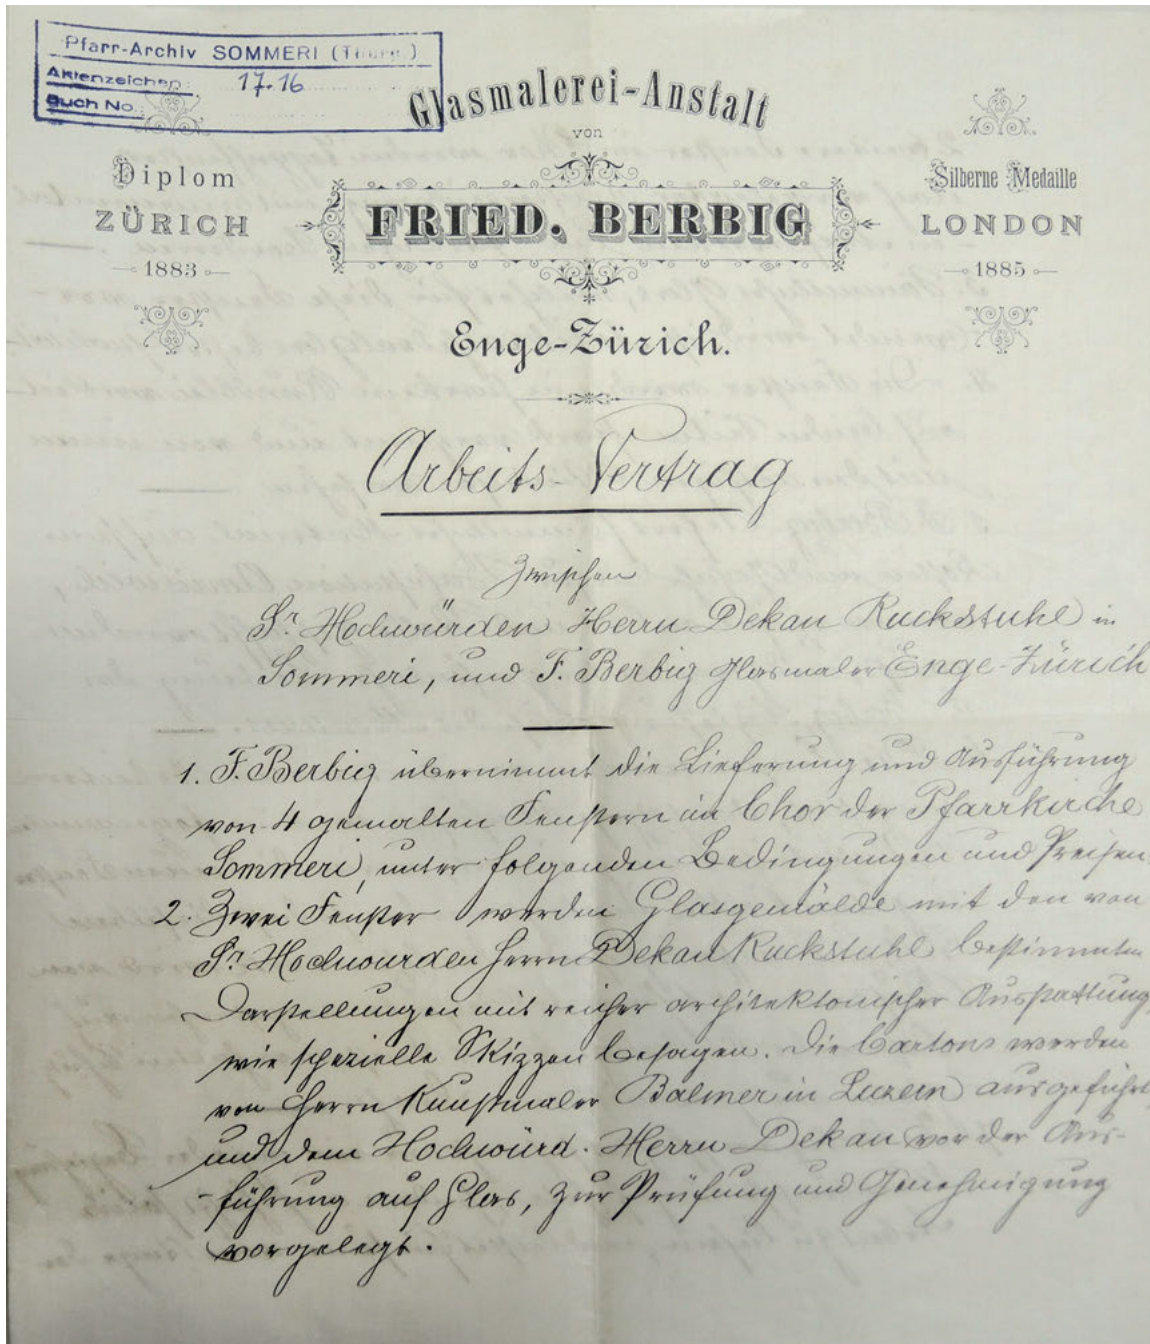 Pfarr-Archiv SOMMERI (Thurg.)
Aktenzeichen: 17.16
Buch No.:
Glasmalerei-Anstalt
von
Diplom
ZÜRICH
1883
FRIED. BERBIG
Silberne Medaille
LONDON
1885
Enge-Zürich.
Arbeits-Vertrag
zwischen
Sr. Hochwürden Herrn Dekan Ruckstuhl in
Sommeri, und F. Berbig Glasmaler Enge-Zürich
1. F. Berbig übernimmt die Lieferung und Ausführung
von 4 gemalten Fenstern im Chor der Pfarrkirche
Sommeri, unter folgenden Bedingungen und Preisen.
2. Zwei Fenster werden Glasgemälde mit den von
Sr. Hochwürden Herrn Dekan Ruckstuhl bestimmten
Darstellungen mit reicher architektonischer Ausstattung,
wie spezielle Skizzen besagen. Die Cartons werden
von Herrn Kunstmaler Balmer in Luzern ausgeführt,
und dem Hochwürd. Herrn Dekan vor der Aus-
-führung auf Glas, zur Prüfung und Genehmigung
vorgelegt.